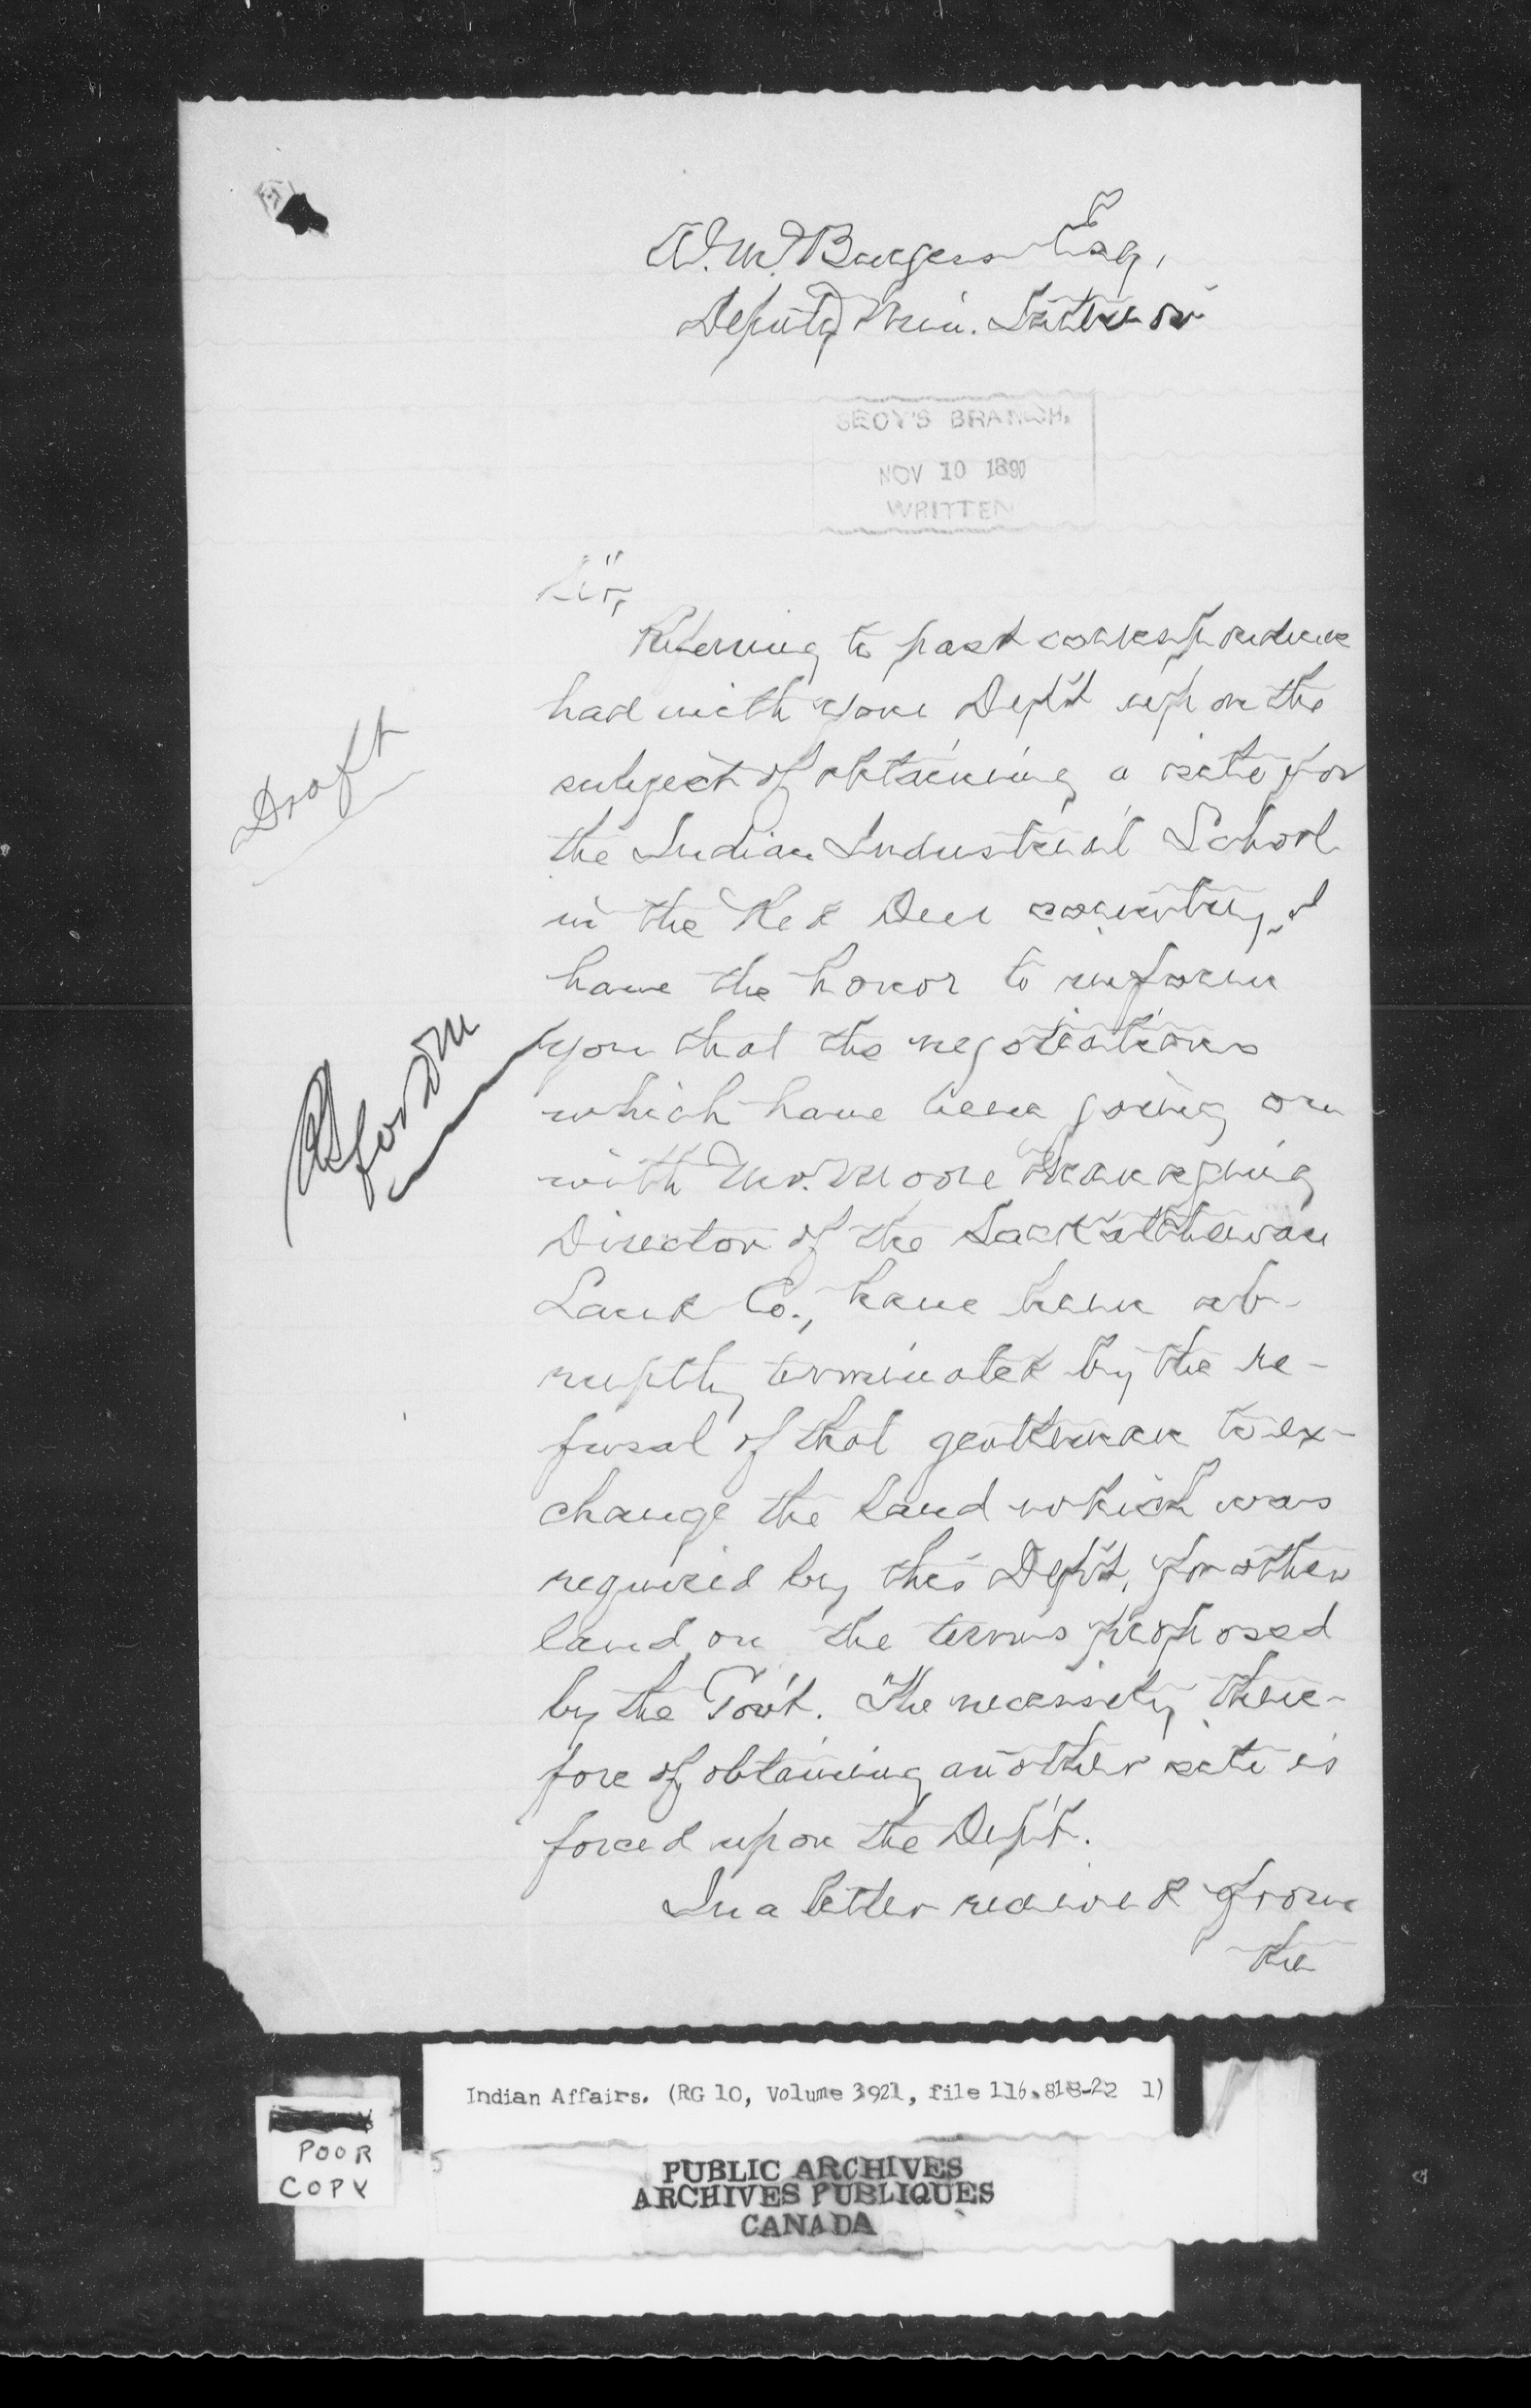 A. M. Burgess Esq,
Deputy Min. Interior
SECY'S BRANCH.
NOV 10 1890
WRITTEN
Sir,
Referring to past correspondence
had with your Dep't upon the
subject of obtaining a site for
the Indian Industrial School
in the Red Deer country, I
have the honor to inform
you that the negotiations
which have been going on
with Mr. Moore Managing
Director of the Saskatchewan
Land Co., have been ab-
ruptly terminated by the re-
fusal of that gentleman to ex-
change the land which was
required by this Dep't, for other
land on the terms proposed
by the Gov't. The necessity there-
fore of obtaining another site is
forced upon the Dep't.
In a letter received from
the
Draft
Indian Affairs. (RG 10, Volume 3921, file 116,818-22 1)
POOR
COPY
PUBLIC ARCHIVES
ARCHIVES PUBLIQUES
CANADA